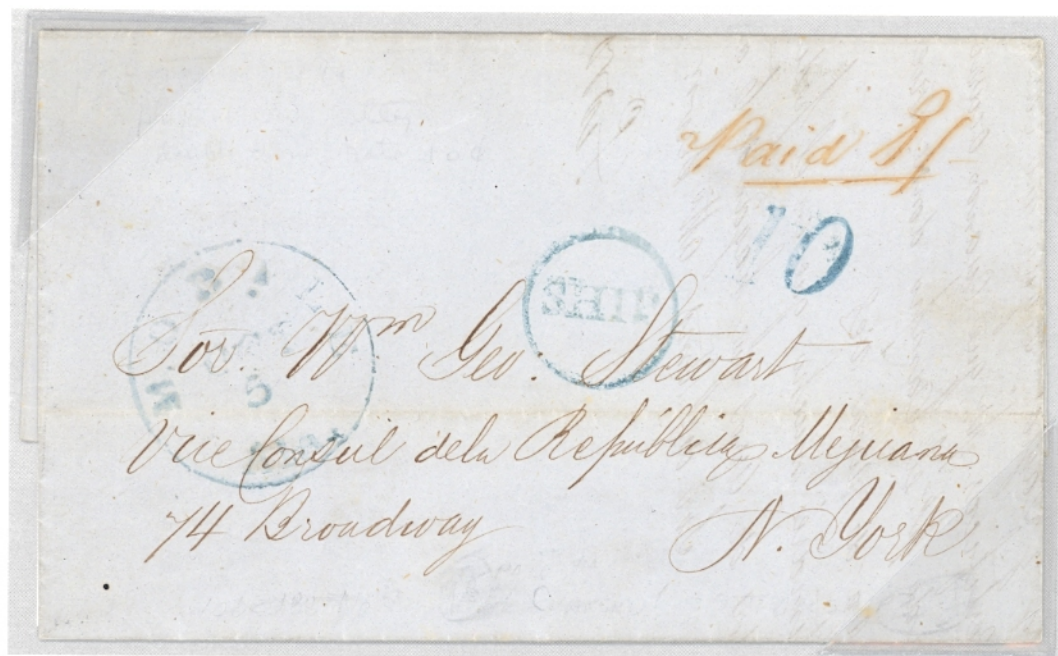 Paid 2/-
10
SHIP
MOBILE
5
Sor. Wm Geo. Stewart
Vice Consul dela República Mejicana
74 Broadway N. York